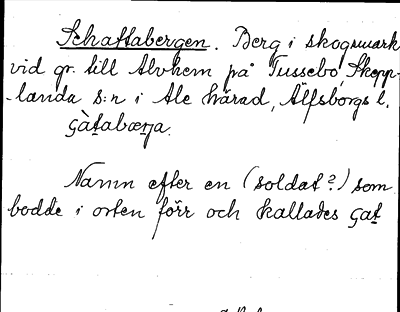 Schattabergen. Berg i skogsmark
vid gr. till Alvhem på Tussebo, Skepp-
landa s:n i Ale härad, Älfsborgs l.
ʂàt̲abær̲ja.
Namn efter en (soldat?) som
bodde i orten förr och kallades ʂat̲